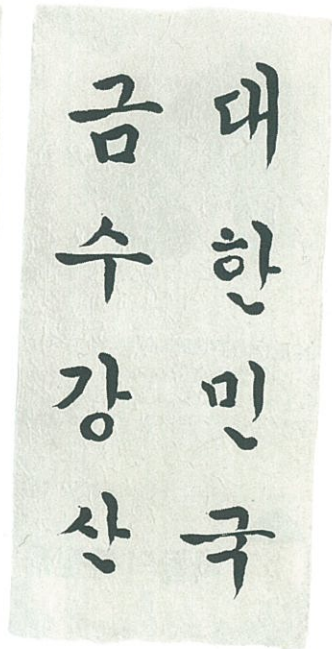 대한민국
금수강산